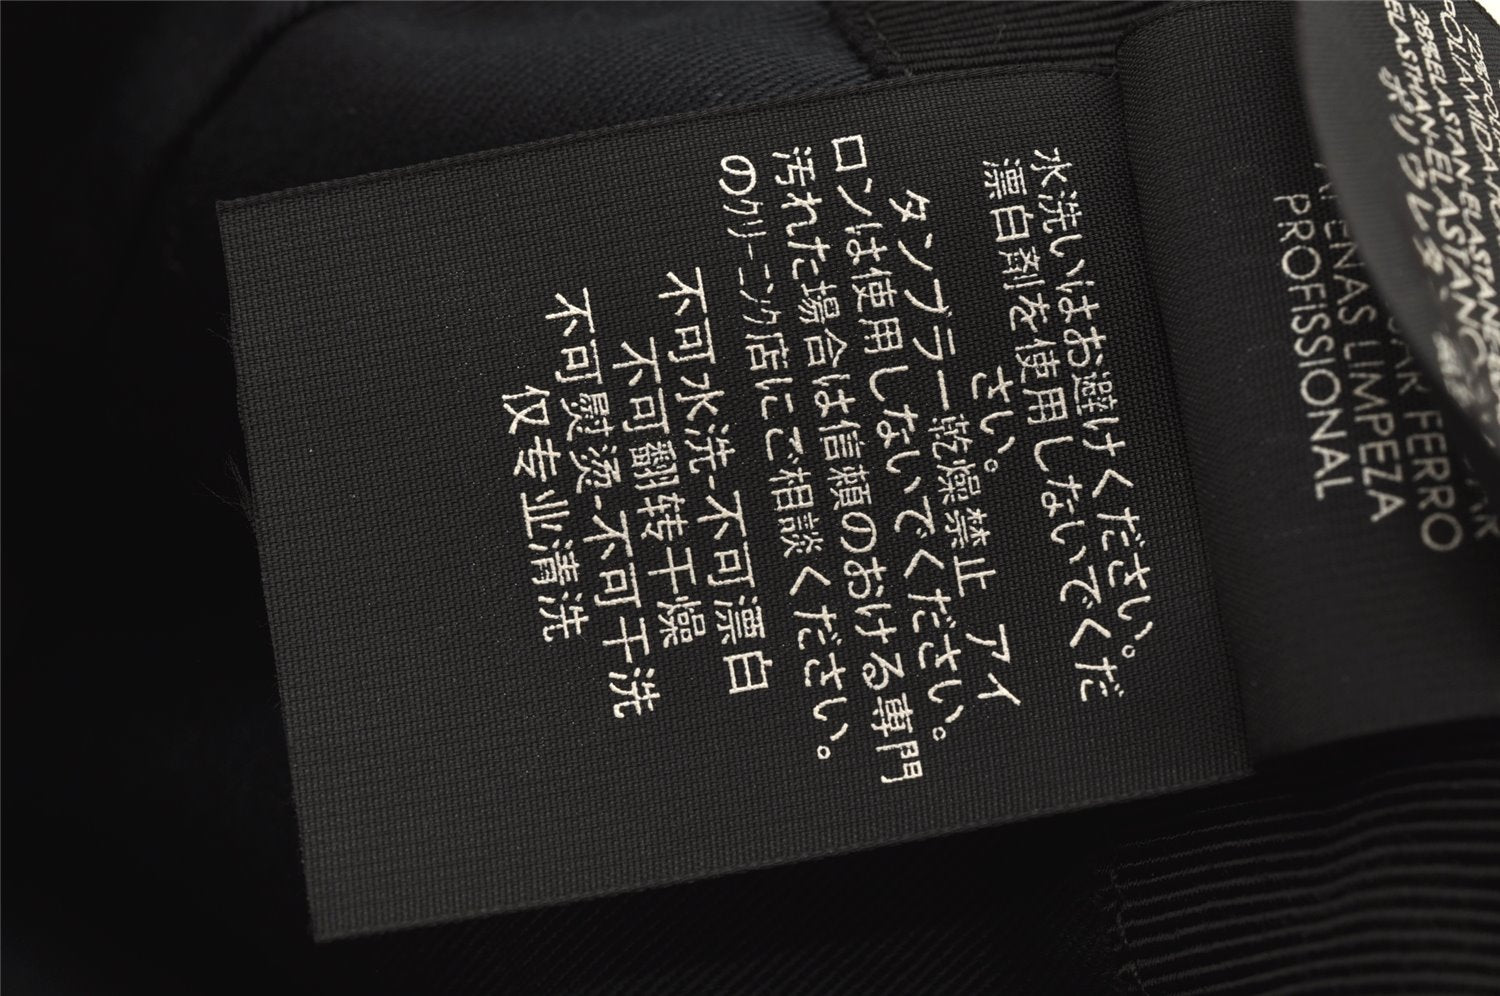 28%ELASTAN-ELASTANE
ELASTHAN-ELASTANO
FERRO
LIMPEZA
PROFISSIONAL
水洗いはお避けください。
漂白剤を使用しないでくだ
さい。
タンブラー乾燥禁止 アイ
ロンは使用しないでください。
汚れた場合は信頼のおける専門
のクリーニング店にご相談ください。
不可水洗-不可漂白
不可翻转干燥
不可熨烫-不可干洗
仅专业清洗